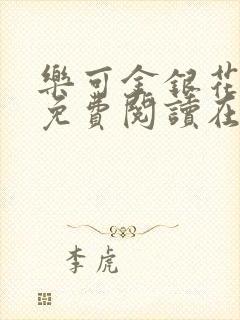 樂可金銀花
免費閱讀在
李虎